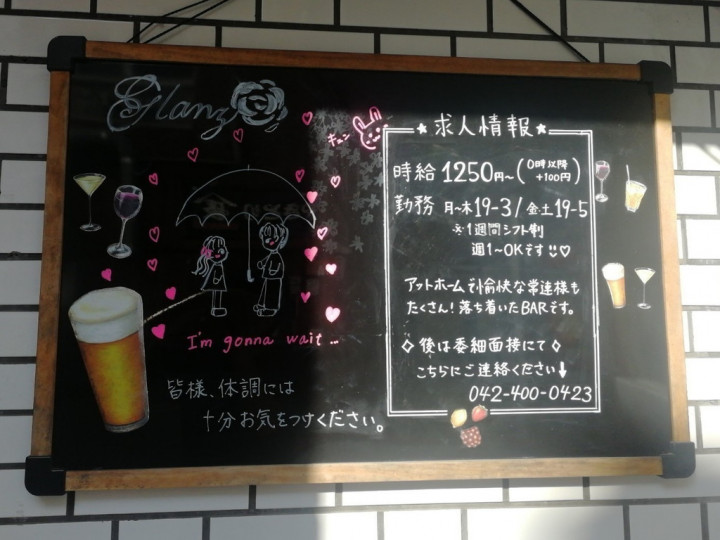 Glanz
I'm gonna wait...
皆様、体調には
十分お気をつけください。
キュン
★求人情報★
時給 1250円~(0時以降+100円)
勤務 月~木19-3/金土19-5
※1週間シフト制
週1~OKです♡
アットホームで愉快な常連様も
たくさん!落ち着いたBARです。
◇後は委細面接にて◇
こちらにご連絡ください⬇
042-400-0423